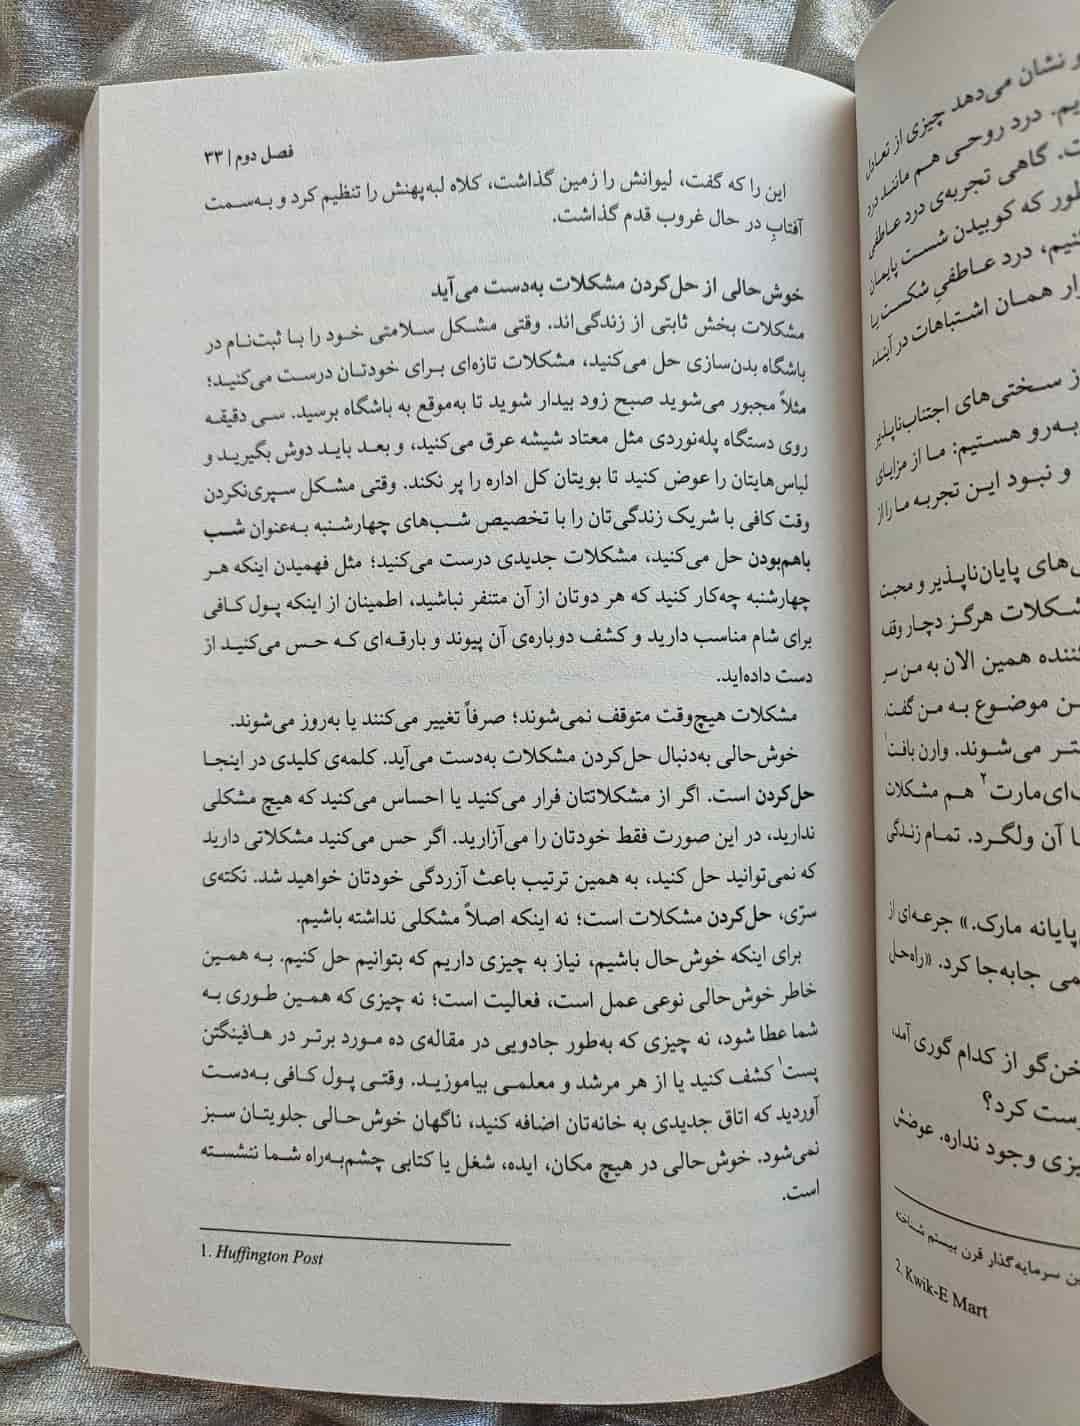 فصل دوم | ۳۳
این را که گفت، لیوانش را زمین گذاشت، کلاه لبه‌پهنش را تنظیم کرد و به‌سمت
آفتابِ در حال غروب قدم گذاشت.
خوش‌حالی از حل‌کردن مشکلات به‌دست می‌آید
مشکلات بخش ثابتی از زندگی‌اند. وقتی مشکل سلامتی خود را با ثبت‌نام در
باشگاه بدن‌سازی حل می‌کنید، مشکلات تازه‌ای برای خودتان درست می‌کنید؛
مثلاً مجبور می‌شوید صبح زود بیدار شوید تا به‌موقع به باشگاه برسید. سی دقیقه
روی دستگاه پله‌نوردی مثل معتاد شیشه عرق می‌کنید، و بعد باید دوش بگیرید و
لباس‌هایتان را عوض کنید تا بویتان کل اداره را پر نکند. وقتی مشکل سپری‌نکردن
وقت کافی با شریک زندگی‌تان را با تخصیص شب‌های چهارشنبه به‌عنوان شب
باهم‌بودن حل می‌کنید، مشکلات جدیدی درست می‌کنید؛ مثل فهمیدن اینکه هر
چهارشنبه چه‌کار کنید که هر دوتان از آن متنفر نباشید، اطمینان از اینکه پول کافی
برای شام مناسب دارید و کشف دوباره‌ی آن پیوند و بارقه‌ای که حس می‌کنید از
دست داده‌اید.
مشکلات هیچ‌وقت متوقف نمی‌شوند؛ صرفاً تغییر می‌کنند یا به‌روز می‌شوند.
خوش‌حالی به‌دنبال حل‌کردن مشکلات به‌دست می‌آید. کلمه‌ی کلیدی در اینجا
حل‌کردن است. اگر از مشکلاتتان فرار می‌کنید یا احساس می‌کنید که هیچ مشکلی
ندارید، در این صورت فقط خودتان را می‌آزارید. اگر حس می‌کنید مشکلاتی دارید
که نمی‌توانید حل کنید، به همین ترتیب باعث آزردگی خودتان خواهید شد. نکته‌ی
سرّی، حل‌کردن مشکلات است؛ نه اینکه اصلاً مشکلی نداشته باشیم.
برای اینکه خوش‌حال باشیم، نیاز به چیزی داریم که بتوانیم حل کنیم. به همین
خاطر خوش‌حالی نوعی عمل است، فعالیت است؛ نه چیزی که همین طوری به
شما عطا شود، نه چیزی که به‌طور جادویی در مقاله‌ی ده مورد برتر در هافینگتن
پست۱ کشف کنید یا از هر مرشد و معلمی بیاموزید. وقتی پول کافی به‌دست
آوردید که اتاق جدیدی به خانه‌تان اضافه کنید، ناگهان خوش‌حالی جلویتان سبز
نمی‌شود. خوش‌حالی در هیچ مکان، ایده، شغل یا کتابی چشم‌به‌راه شما ننشسته
است.
1. Huffington Post
و نشان می‌دهد چیزی از تعادل
درد روحی هم مانند درد
گاهی تجربه‌ی درد عاطفی
طور که کوبیدن شست پایمان
درد عاطفیِ شکست یا
همان اشتباهات در آینده
سختی‌های اجتناب‌ناپذیر
به‌رو هستیم: ما از مزایای
و نبود این تجربه ما را از
های پایان‌ناپذیر و محبت
هرگز دچار وقف
همین الان به من سر
موضوع به من گفت
می‌شوند. وارن بافت۱
ای‌مارت۲ هم مشکلات
آن ولگرد. تمام زندگی
مارک.» جرعه‌ای از
جابه‌جا کرد. «راه‌حل
از کدام گوری آمد،
کرد؟
وجود نداره. عوضش
سرمایه‌گذار قرن بیستم شناخته
2. Kwik-E Mart